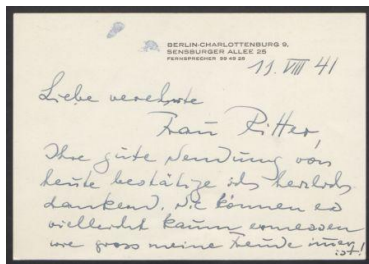 BERLIN-CHARLOTTENBURG 9,
SENSBURGER ALLEE 25
FERNSPRECHER 99 45 28
11. VIII 41
Liebe verehrte
Frau Ritter,
Ihre gute Sendung von
heute bestätige ich herzlich
dankend. Sie können es
vielleicht kaum ermessen
wie gross meine Freude
ist!